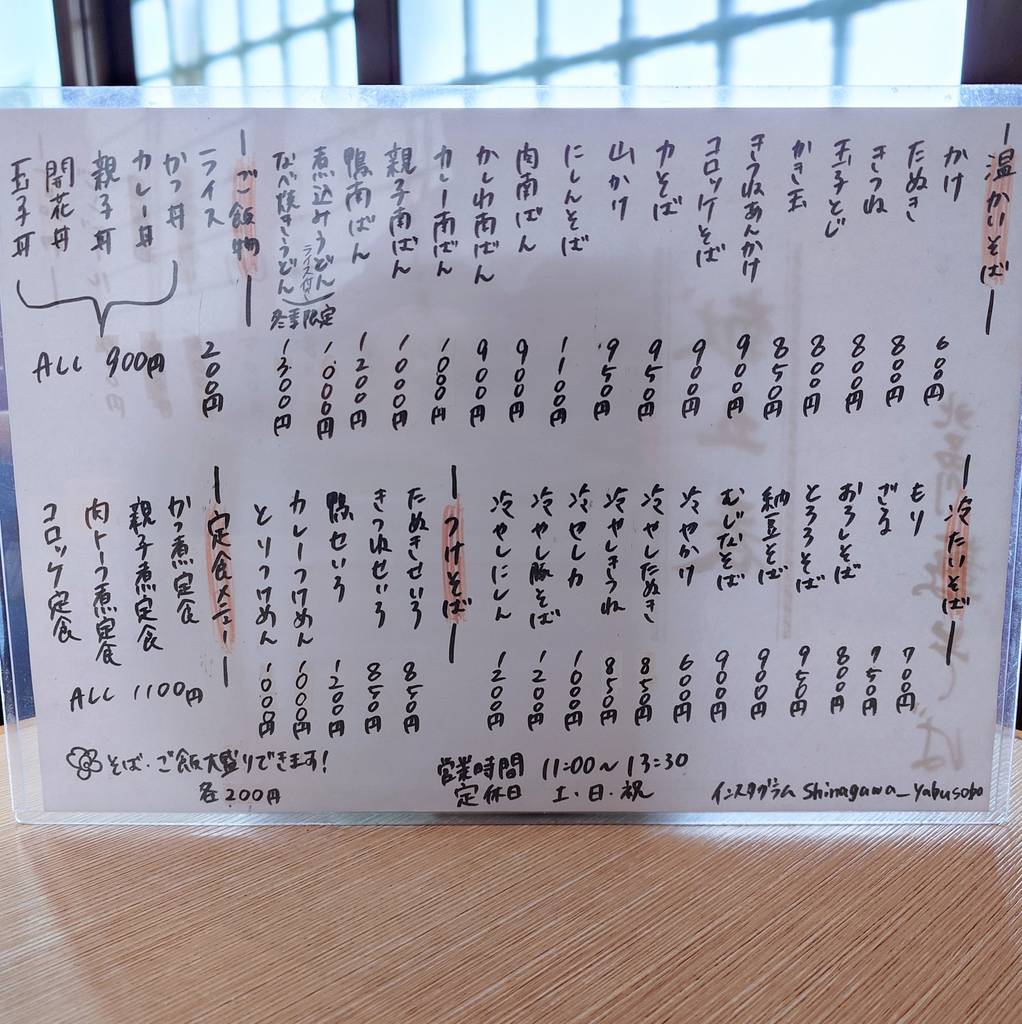 温かいそば
かけ 600円
たぬき 800円
きつね 800円
玉子とじ 800円
かき玉 850円
きつねあんかけ 900円
コロッケそば 900円
力そば 950円
山かけ 950円
にしんそば 1100円
肉南ばん 900円
かしわ南ばん 900円
カレー南ばん 1000円
親子南ばん 1000円
鴨南ばん 1200円
煮込みうどん ライス付 1000円
なべ焼きうどん 1300円
冬季限定
ご飯物
ライス 200円
かつ丼
カレー丼
親子丼
開花丼
玉子丼
ALL 900円
冷たいそば
もり 700円
ざる 750円
おろしそば 800円
とろろそば 950円
納豆そば 900円
むじなそば 900円
冷やかけ 600円
冷やしたぬき 850円
冷やしきつね 850円
冷やし力 1000円
冷やし豚そば 1200円
冷やしにしん 1200円
つけそば
たぬきせいろ 850円
きつねせいろ 850円
鴨せいろ 1200円
カレーつけめん 1000円
とりつけめん 1000円
定食メニュー
かつ煮定食
親子煮定食
肉トーフ煮定食
コロッケ定食
ALL 1100円
そば・ご飯大盛りできます!
各200円
営業時間 11:00〜13:30
定休日 土・日・祝
インスタグラム Shinagawa_Yabusoba